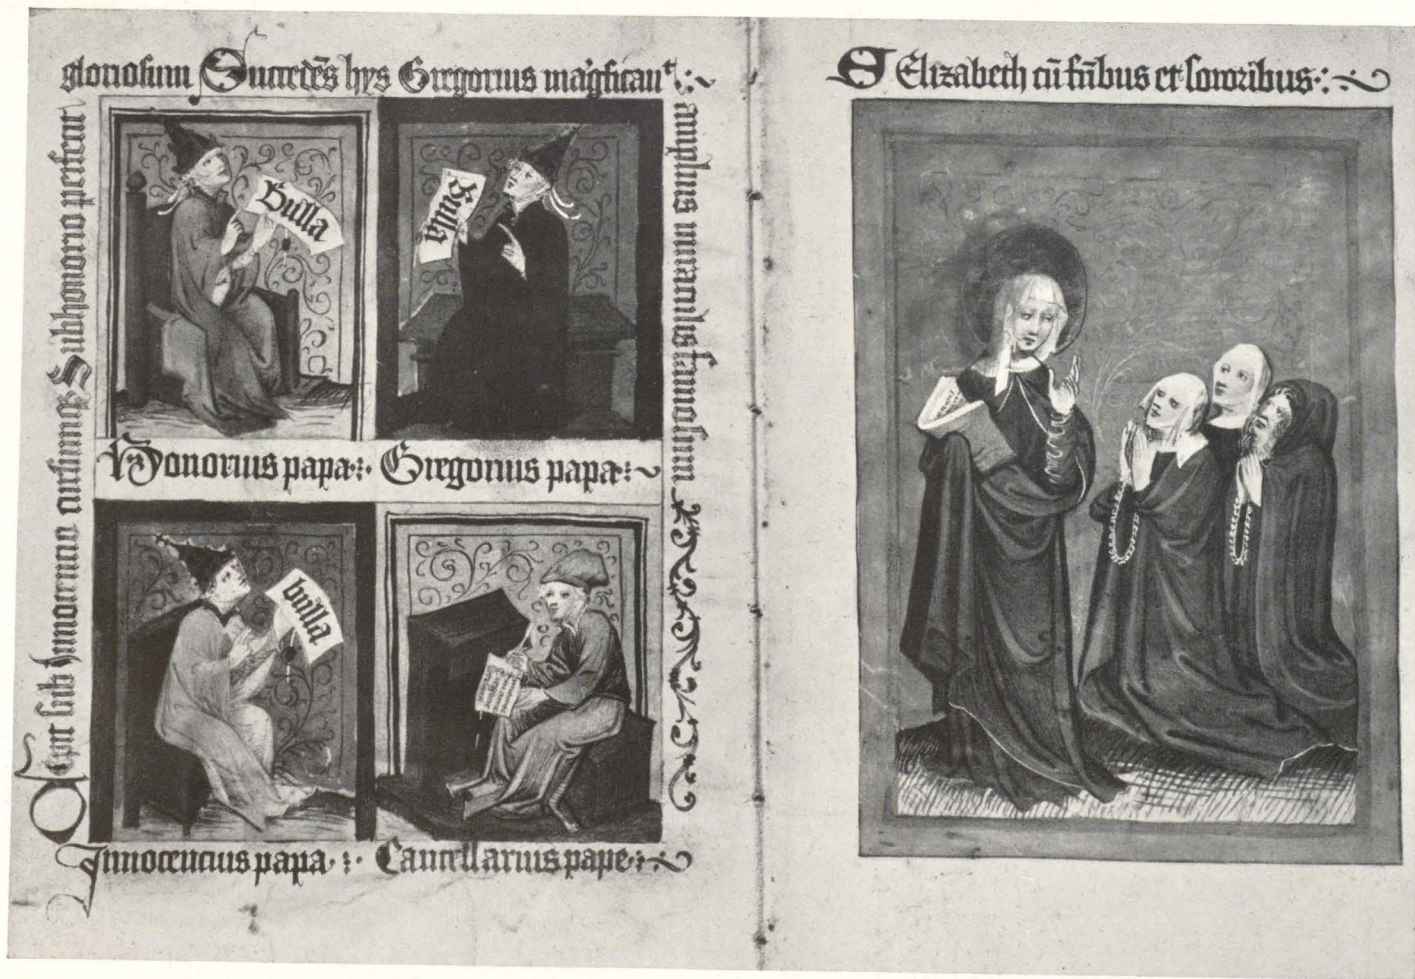 Cepit sub Subhonorio perficit
gloriosum Succedēs hys Gregorius
amplius miraculis famosum
Bulla
Bulla
Honorius papa
Gregorius papa
bulla
Innocencius papa
Cancellarius pape
S Elizabeth cū frībus et sororibus